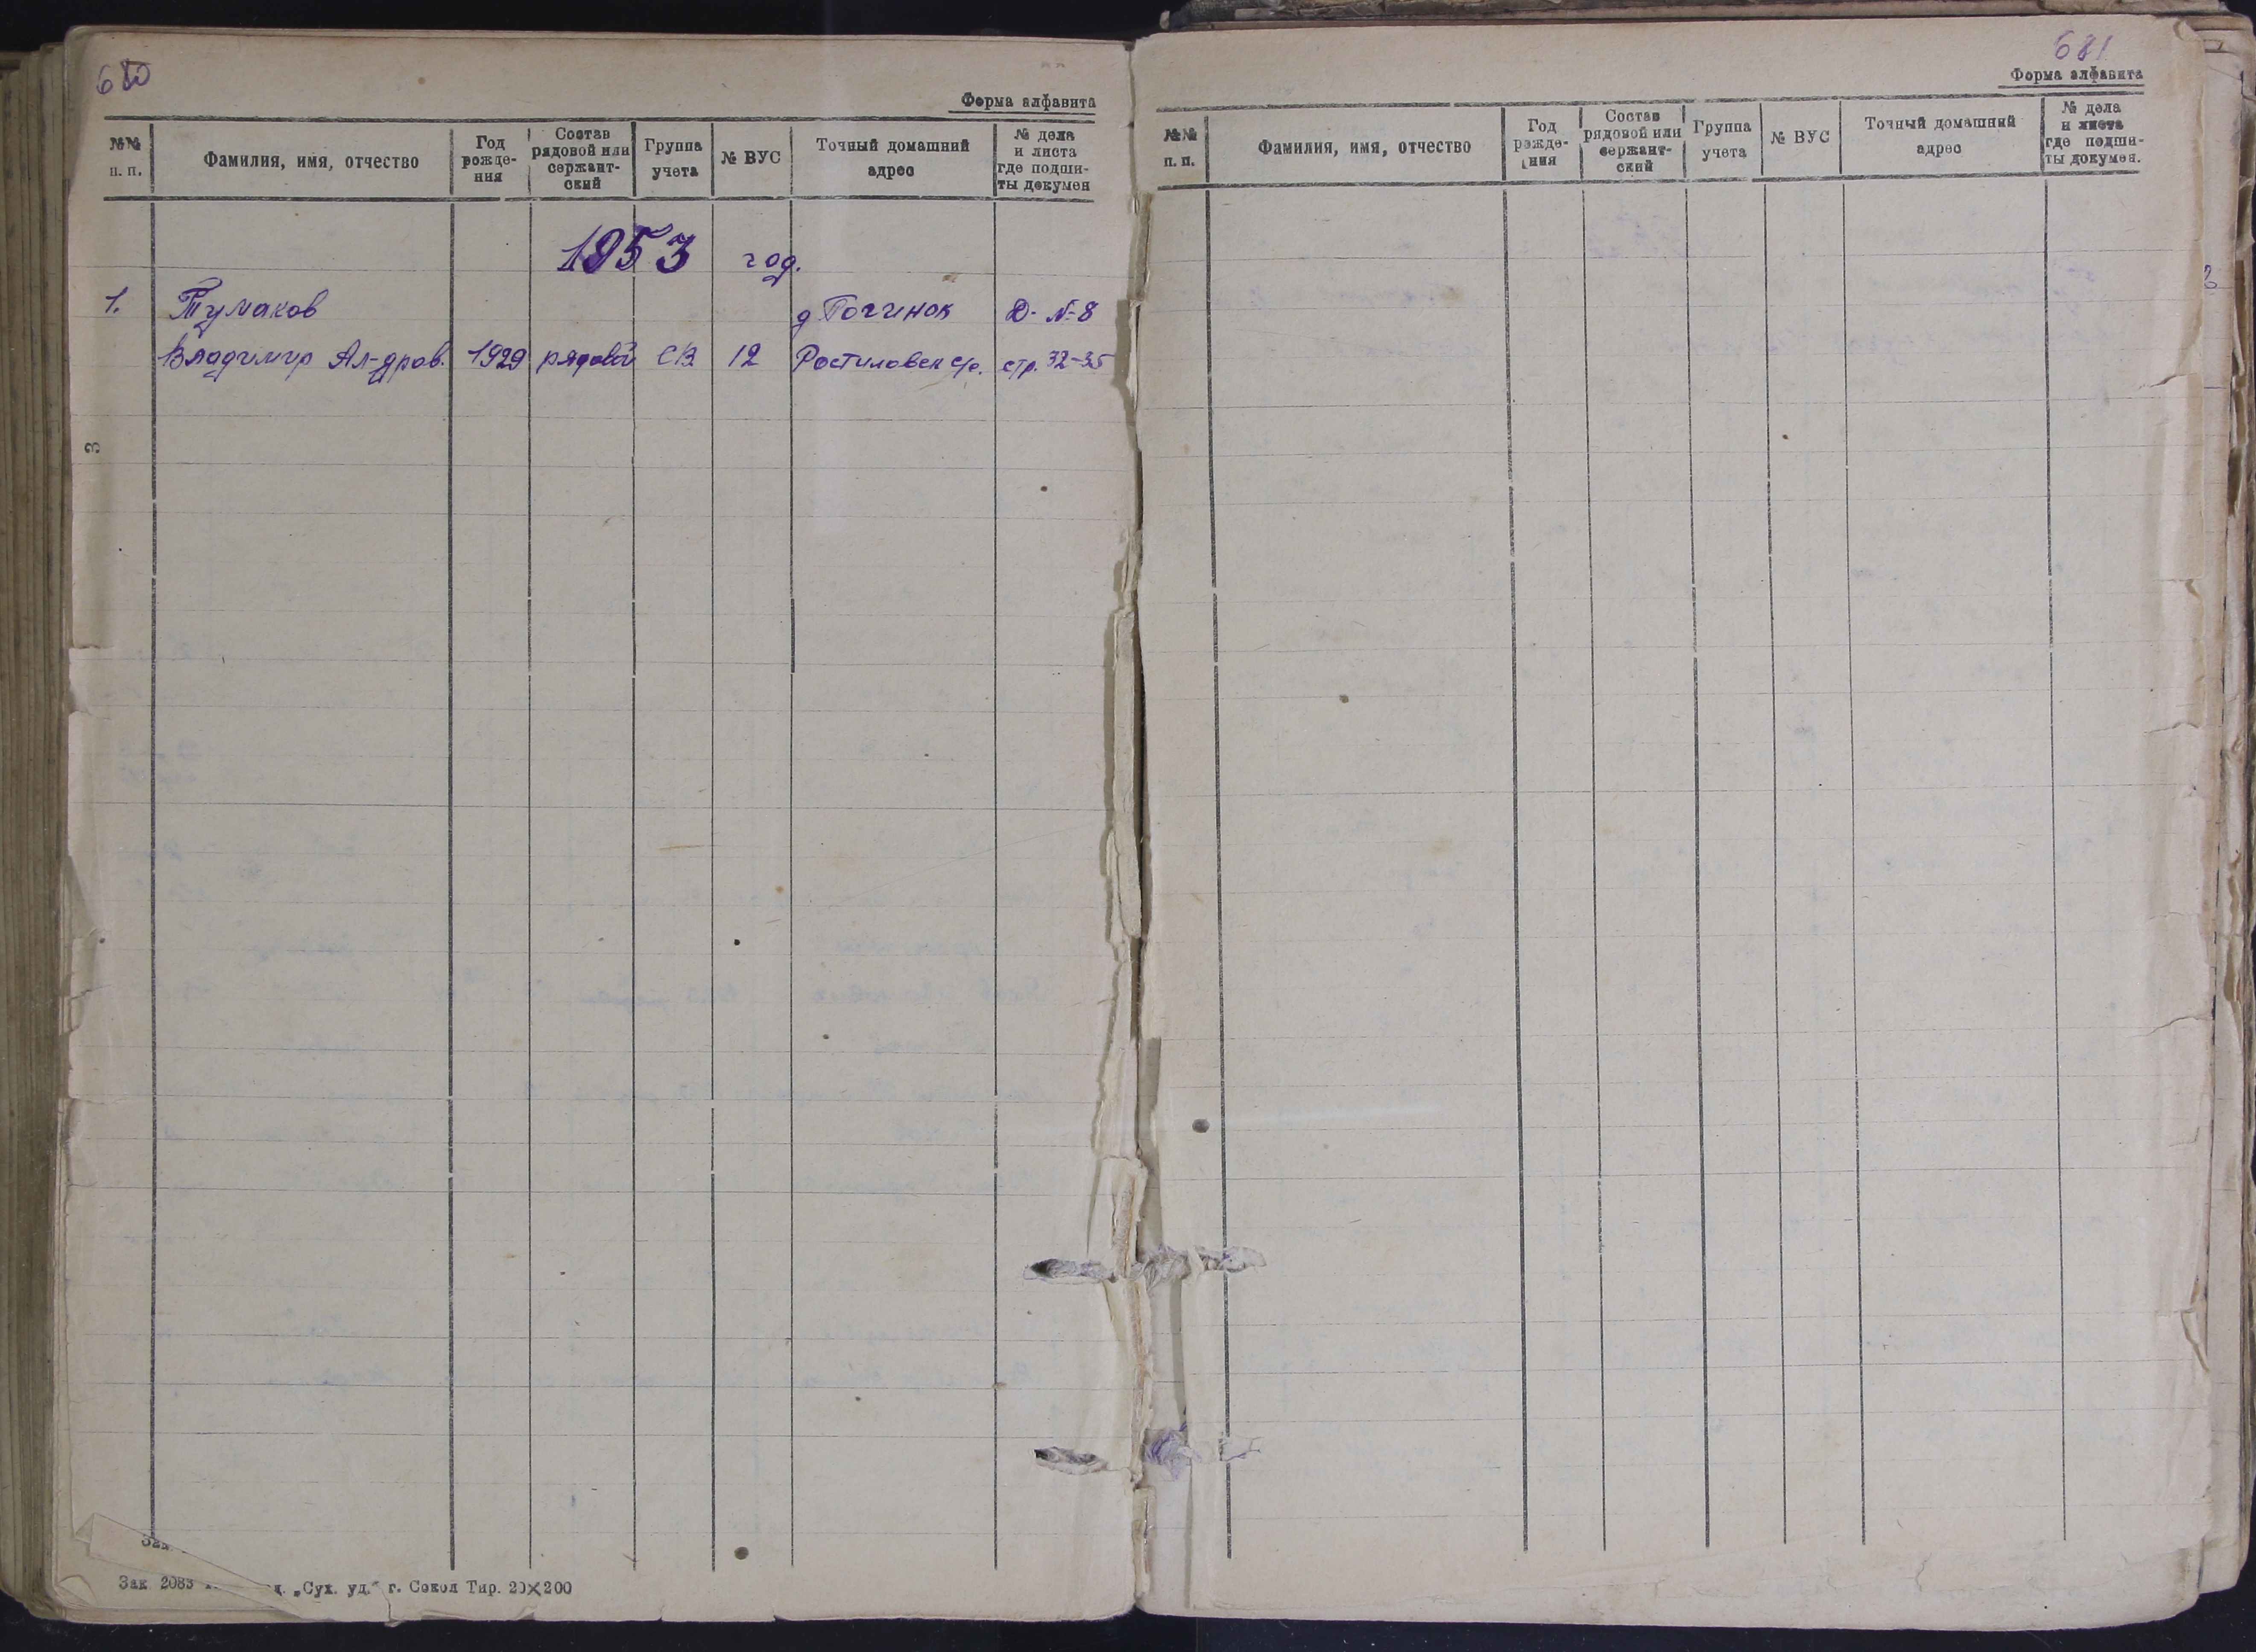 680
Форма алфавита
№№ п. п.
Фамилия, имя, отчество
Год рожде-ния
Состав рядовой или сержант-ский
Группа учета
№ ВУС
Точный домашний адрес
№ дела и листа где подши-ты докумен
1953 год.
1. Тумаков д Починок Д- №-8
Владимир Ал-дров. 1929 рядовой СВ 12 Ростиловск с/с. стр. 32-35
3
Зак. 2083 „Сух. уд.“ г. Сокол Тир. 20×200
681
Форма алфавита
№№ п. п.
Фамилия, имя, отчество
Год рожде-ния
Состав рядовой или сержант-ский
Группа учета
№ ВУС
Точный домашний адрес
№ дела и листа где подши-ты докумен.